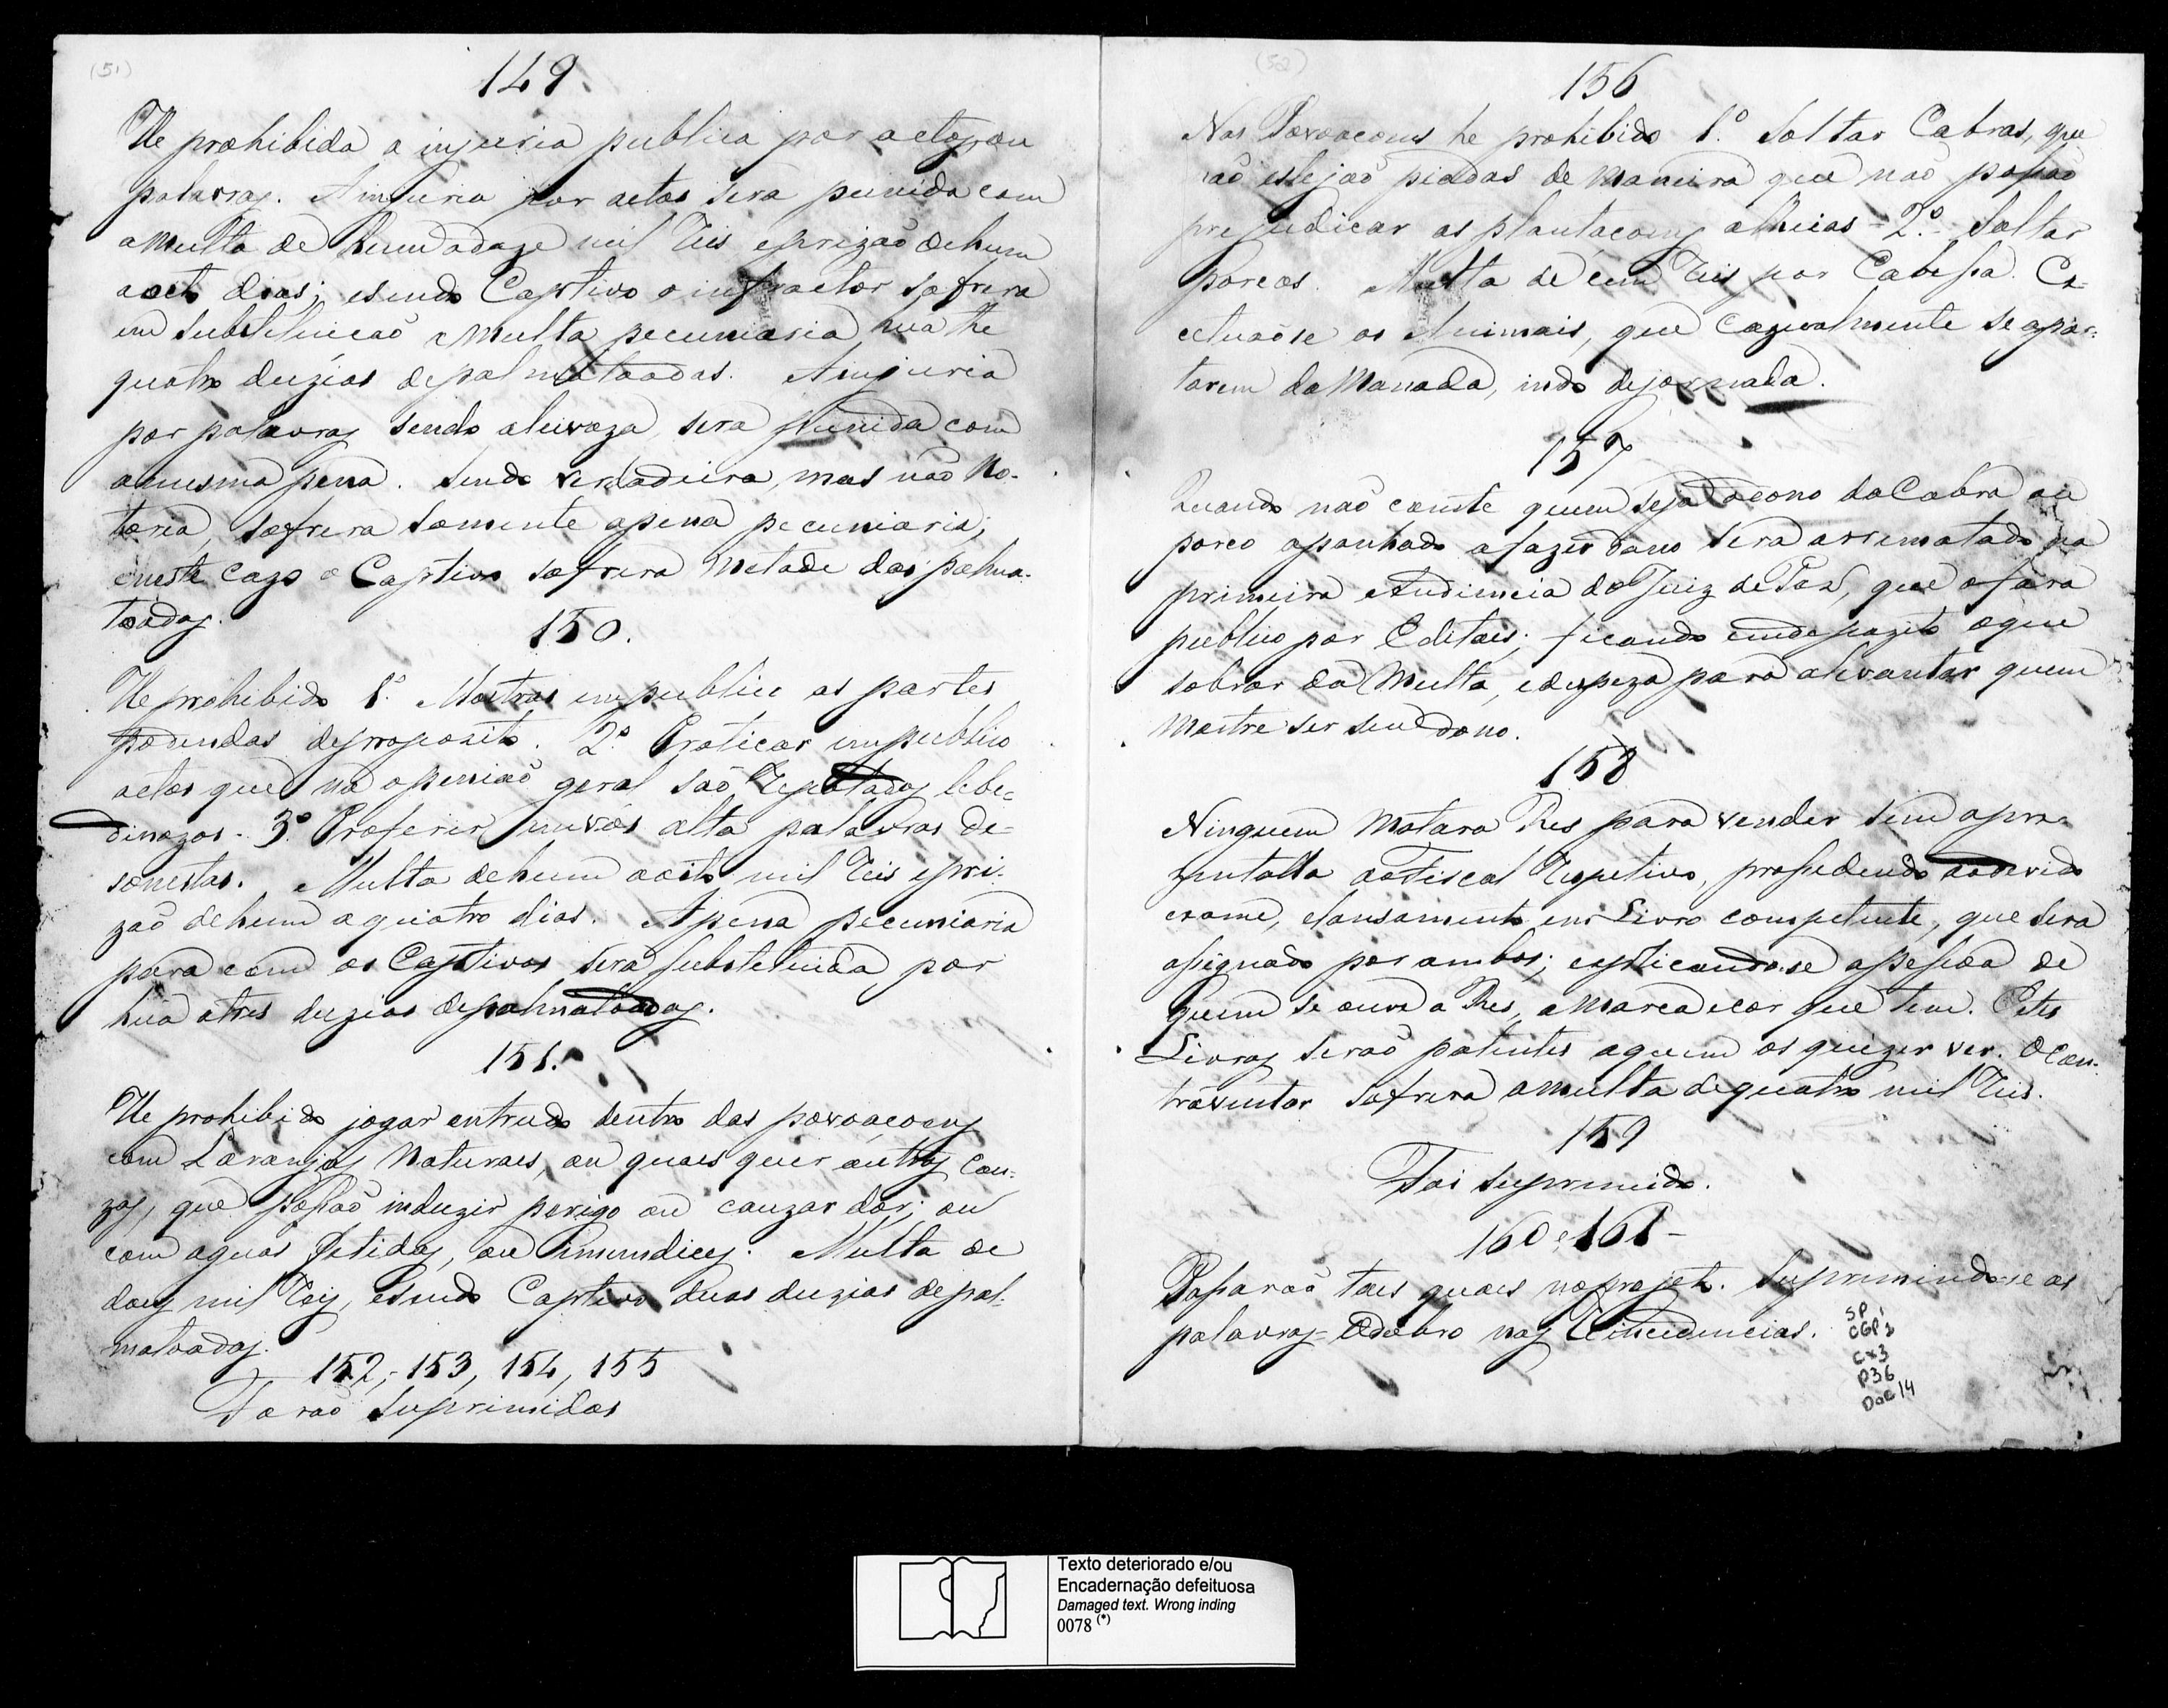 (51)
149.
He prohibida a injuria publica por actos, ou
palavras. A injuria por actos sera punida com
a multa de hum a doze mil reis e prizaõ de hum
a oito dias; e sendo Captivo o infractor sofrera
em substituicaõ a multa pecuniaria hua the
quatro duzias de palmatoadas. A injuria
por palavras sendo aleivoza, sera punida com
a mesma pena. Sendo verdadeira, mas não no-
toria, sofrera somente a pena pecuniaria;
e neste cazo o Captivo sofrera metade das palma-
toadas.
150.
He prohibido 1.º Mostrar em publico as partes
podendas de proposito. 2.º Praticar em publico
actos que na openiaõ geral saõ reputados lebe-
dinozos. 3.º Proferir em vós alta palavras de-
sonestas. Multa de hum a oito mil reis e pri-
zaõ de hum a quatro dias. A pena pecuniaria
para com os Captivos sera substetuida por
hua a tres duzias de palmatoadas.
151.
He prohibido jogar entrudo dentro das povoaçoens
com Laranjas Naturaes, ou quaes quer outras cou-
zas, que possaõ induzir perigo ou cauzar dor; ou
com aguas fetidas, ou immundices. Multa de
dous mil reis, e sendo Captivo duas duzias de pal-
matoadas.
152,-153, 154, 155
Foraõ suprimidos
(52)
156
Nas Povoacoens he prohibido 1.º Soltar Cabras, que
naõ estejaõ piadas de maneira que naõ possaõ
prejudicar as plantacoens alheias - 2.º Soltar
Porcos. Multa de cem reis por Cabessa. Ex-
cetuaõse os Animais, que cazualmente se apar-
tarem da Manada, indo de jornada.
157
Quando naõ conste quem seja o dono da Cabra ou
porco apanhado a fazer dano sera arrematado na
primeira Audiencia do Juiz de Paz, que o fara
publico por Editais; ficando em depozito o que
sobrar da Multa, e despeza para alevantar quem
mostre ser seu dono.
158
Ninguem matara Res para vender sem apre-
zentalla ao Fiscal respetivo, prossedendo ao devido
exame, e lansamento em Livro competente, que sera
assignado por ambos; explicando-se a pessoa de
quem se ouve a Res, a marca e cor que tem. Estes
Livros seraõ patentes a quem os quizer ver. O con-
traventor sofrera a multa de quatro mil reis.
159
Foi suprimido.
160 e 161 -
Passaraõ tais quaes no projeto. Suprimindo-se as
palavras = O dobro nas reincidencias.
SP
CGP 1
Cx3
P36
Doc 14
Texto deteriorado e/ou
Encadernação defeituosa
Damaged text. Wrong inding
0078 (*)